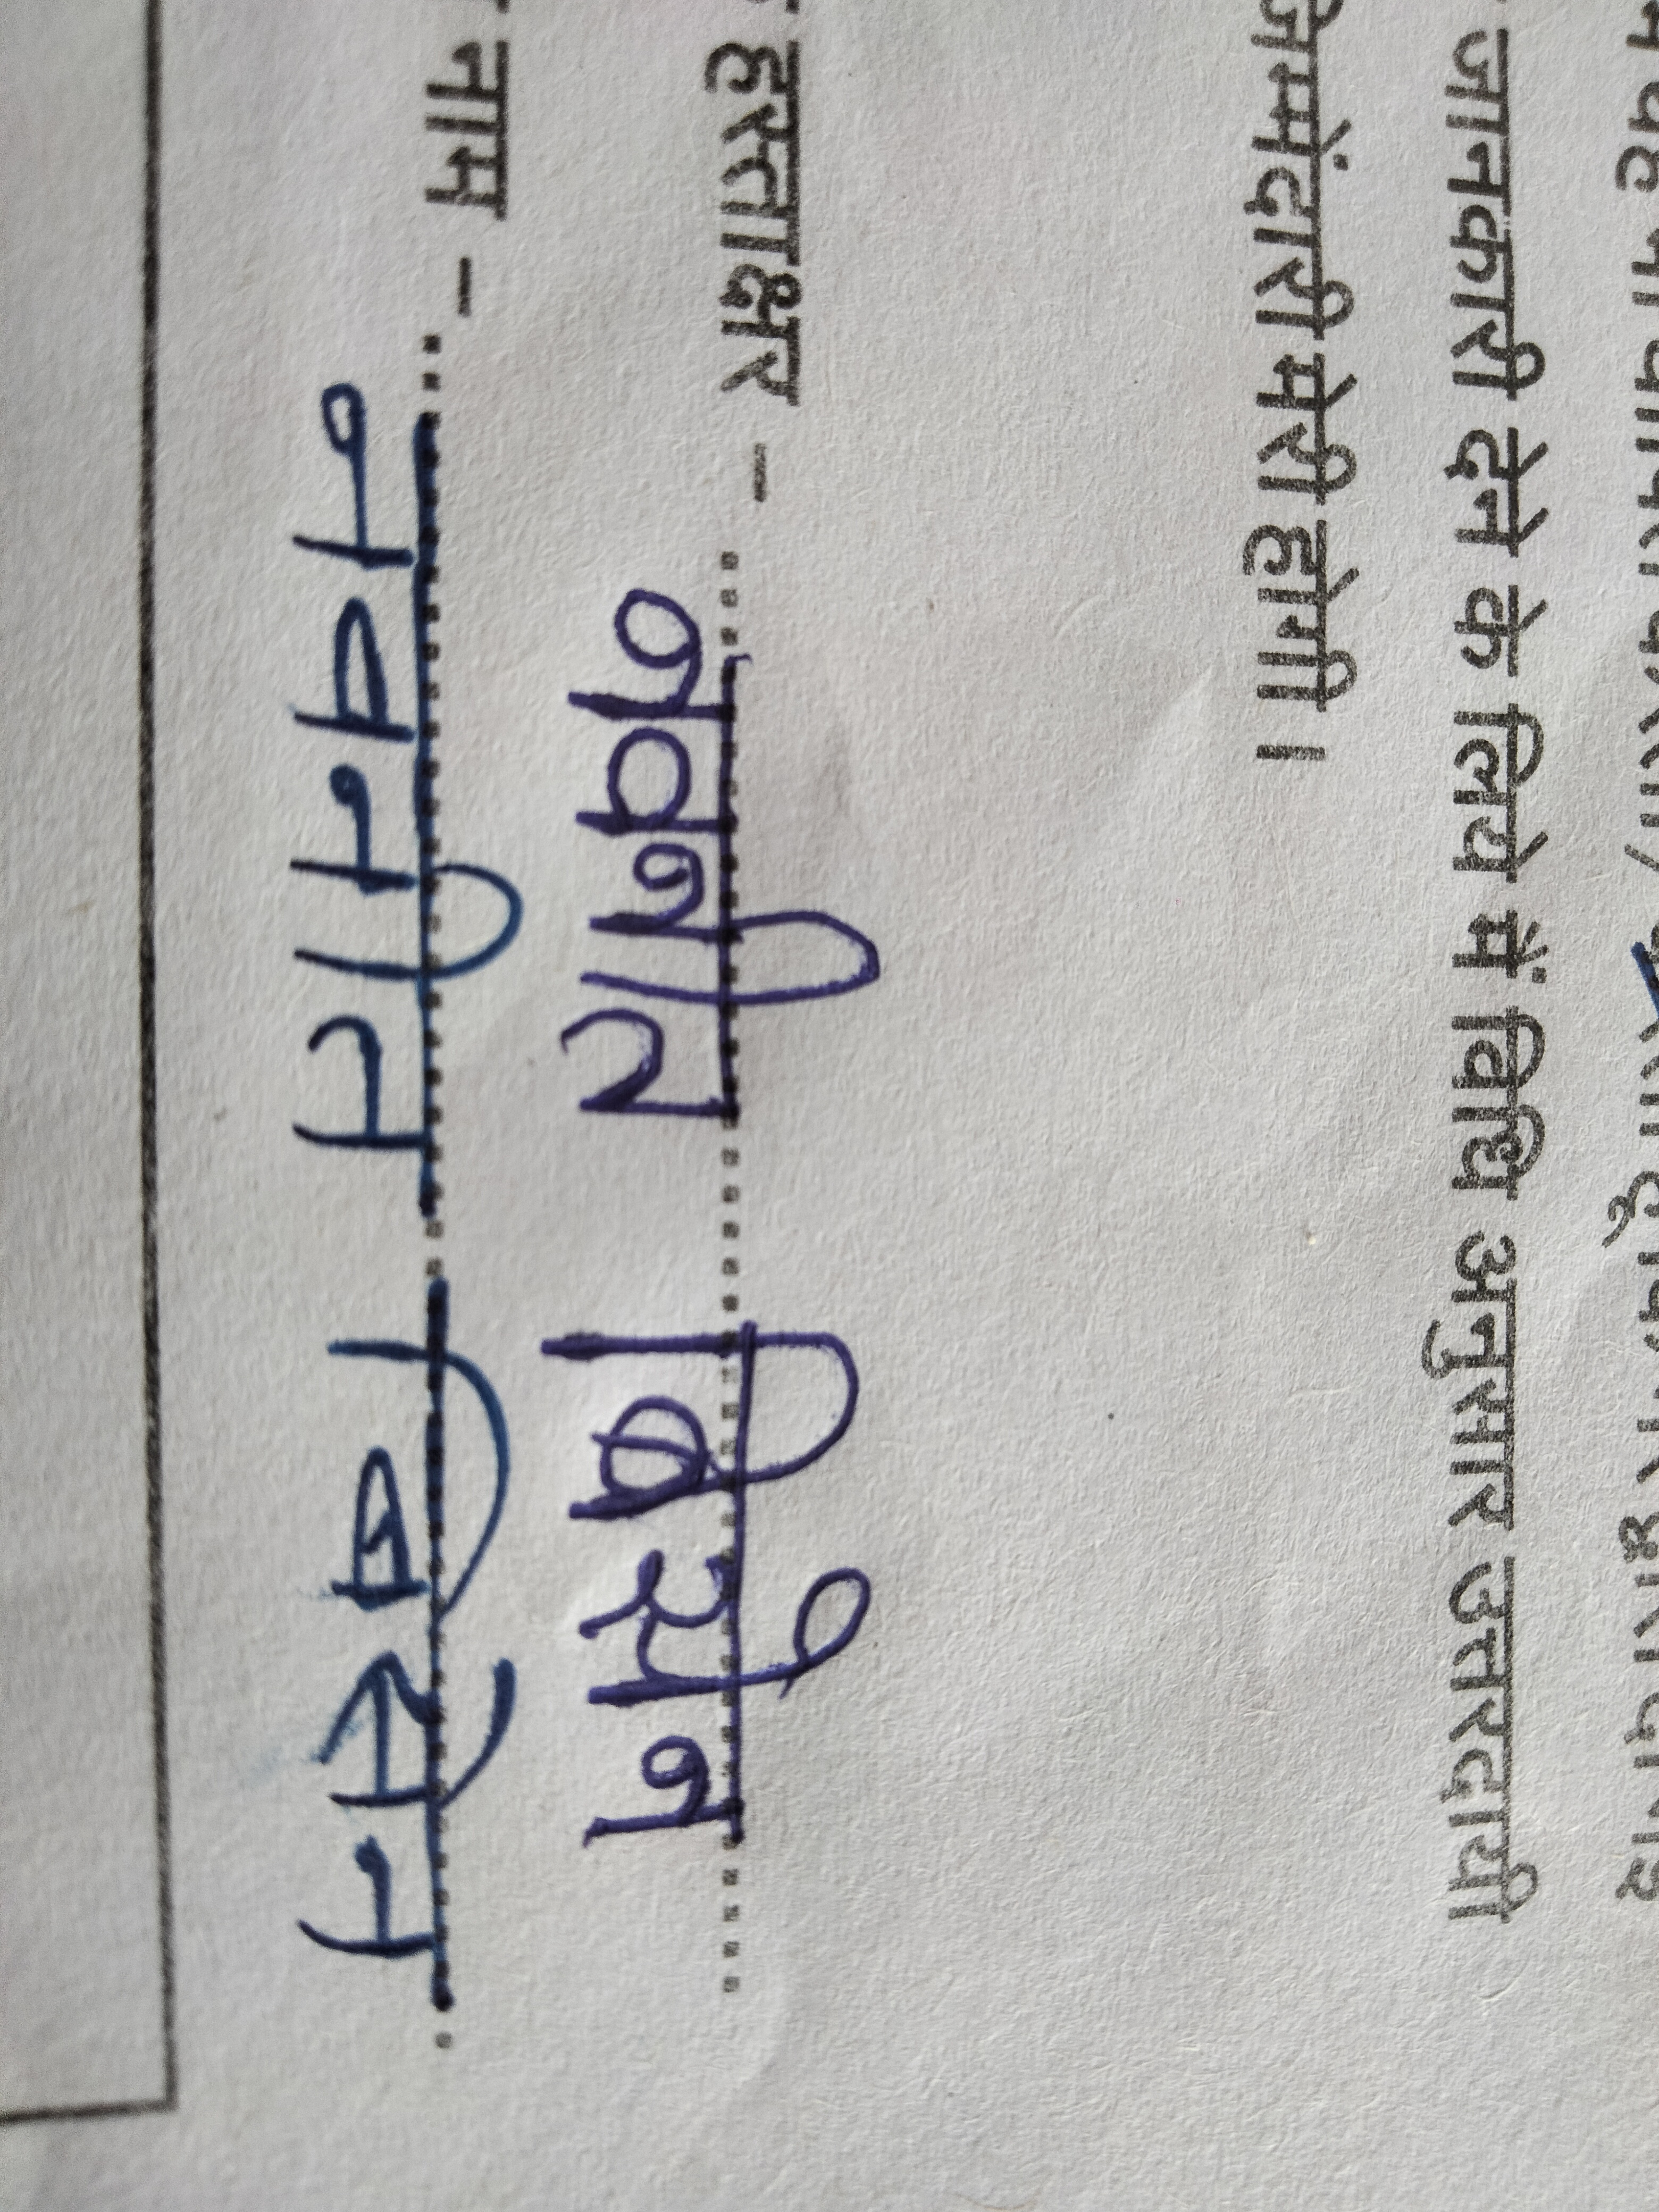 जानकारी देने के लिये में विधि अनुसार उत्तरदायी
जिम्मेंदारी मेरी होगी।
हस्ताक्षर - नवनीत बिसेन
नाम - नवनीत बिसेन